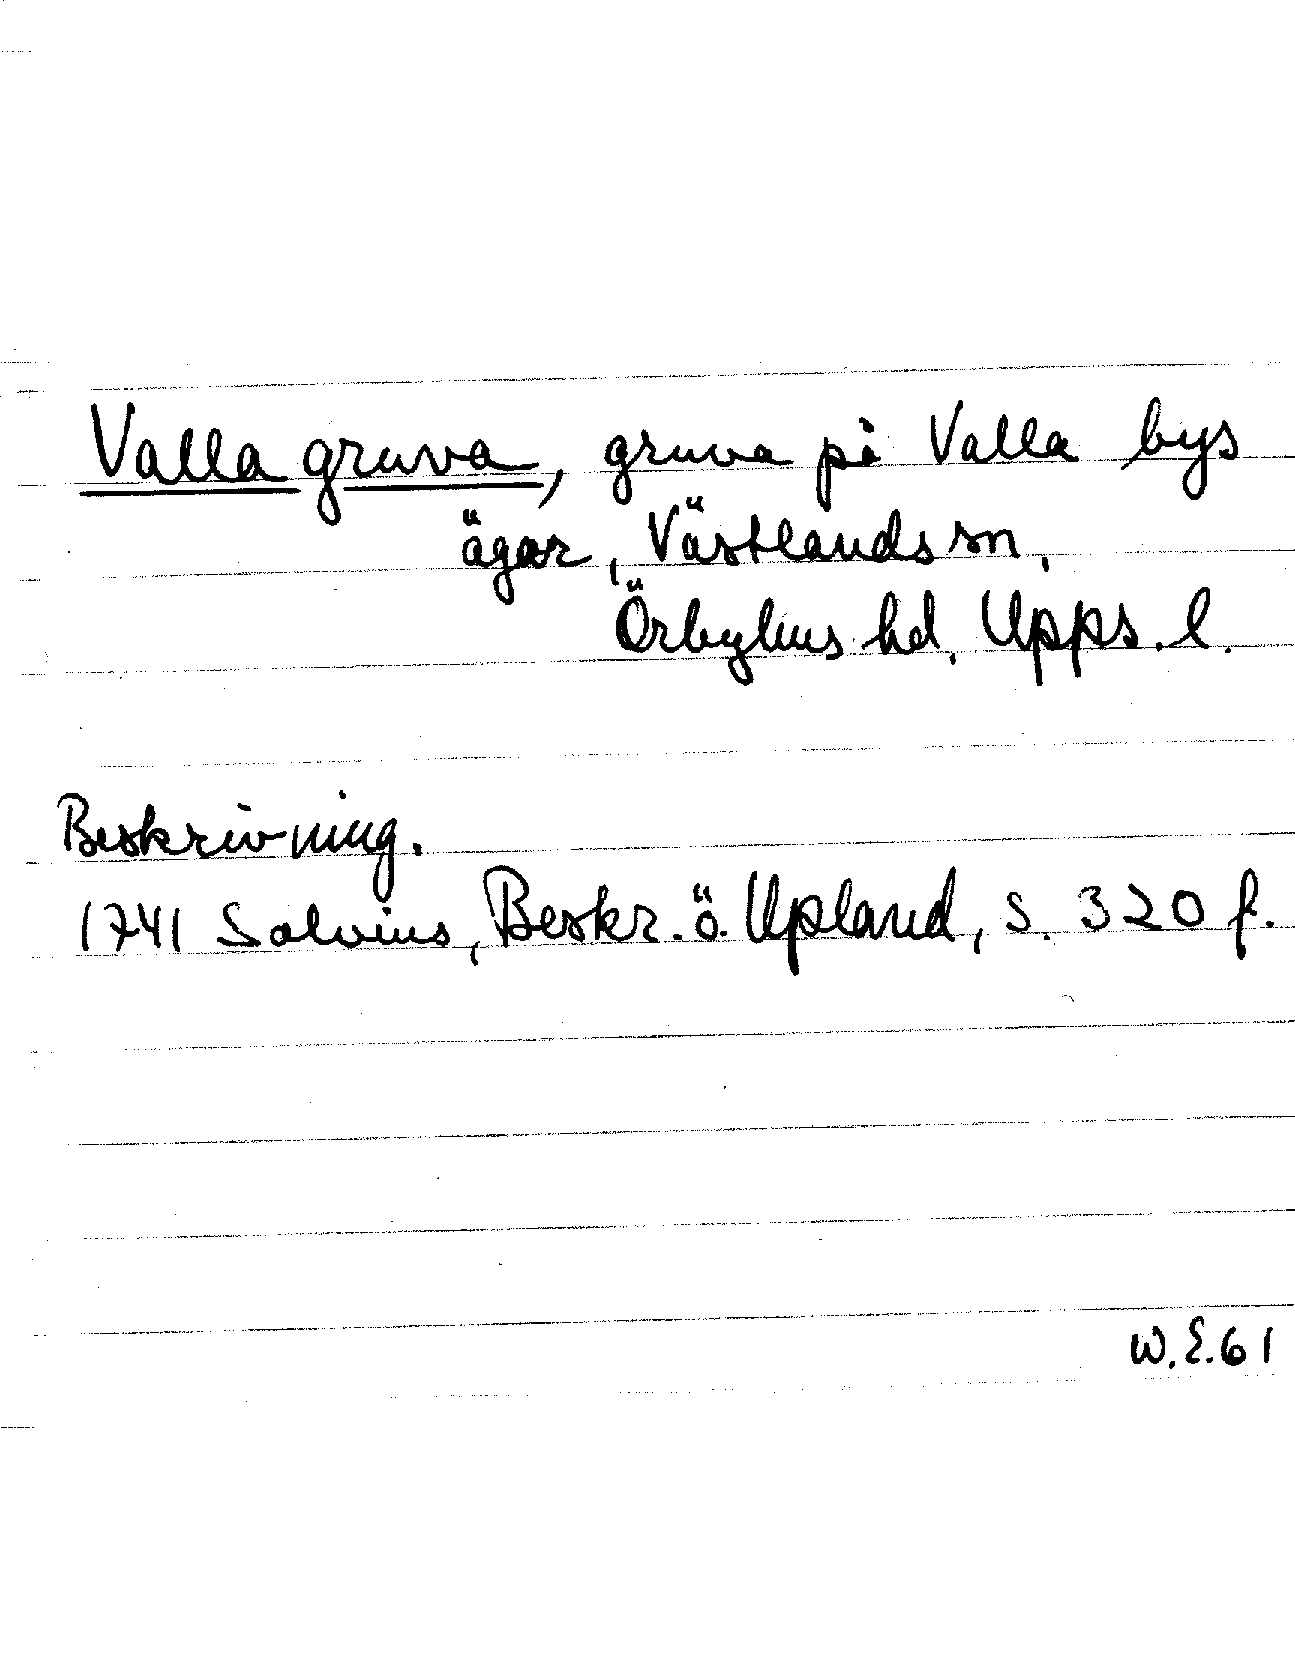 Valla gruva, gruva på Valla bys
ägor, Västlands sn,
Örbyhus hd, Upps. l.
Beskrivning.
1741 Salvius, Beskr. ö. Upland, s. 320 f.
W.E.61